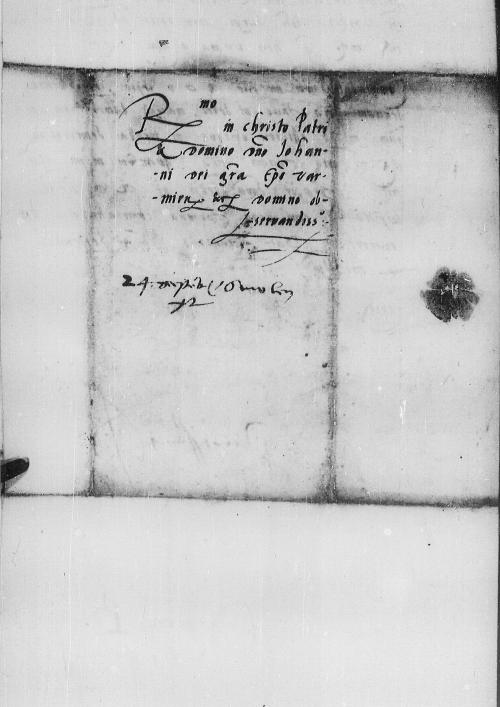 Rmo
in christo Patri
& Domino Dño Johan-
-ni Dei gr̃a Ep̃o Var-
-mien Domino ob-
-servandiss:
24